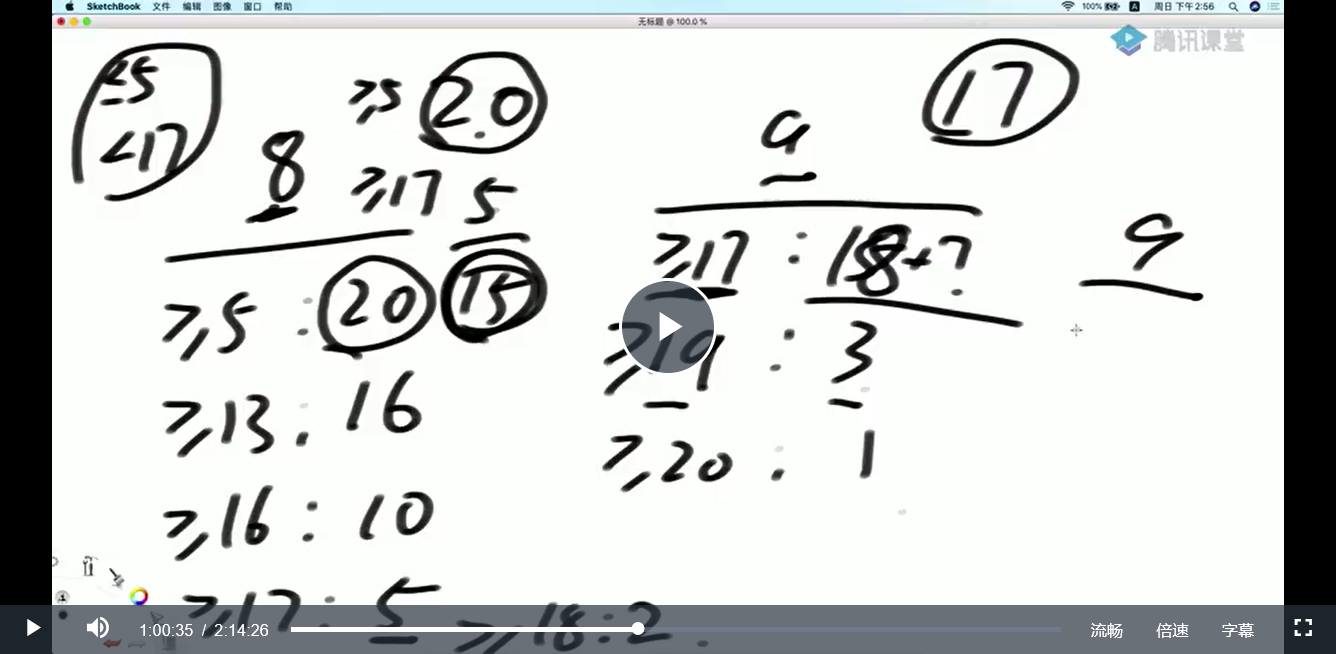 SketchBook 文件 编辑 图像 窗口 帮助
100% 周日 下午2:56
无标题 @ 100.0 %
腾讯课堂
≥5
<17
8
≥5 20
≥17 5
≥5 : 20 15
≥13 : 16
≥16 : 10
≥17 : 5
≥18 : 2
9
≥17 : 18+?
≥19 : 3
≥20 : 1
17
9
1:00:35 / 2:14:26
流畅 倍速 字幕